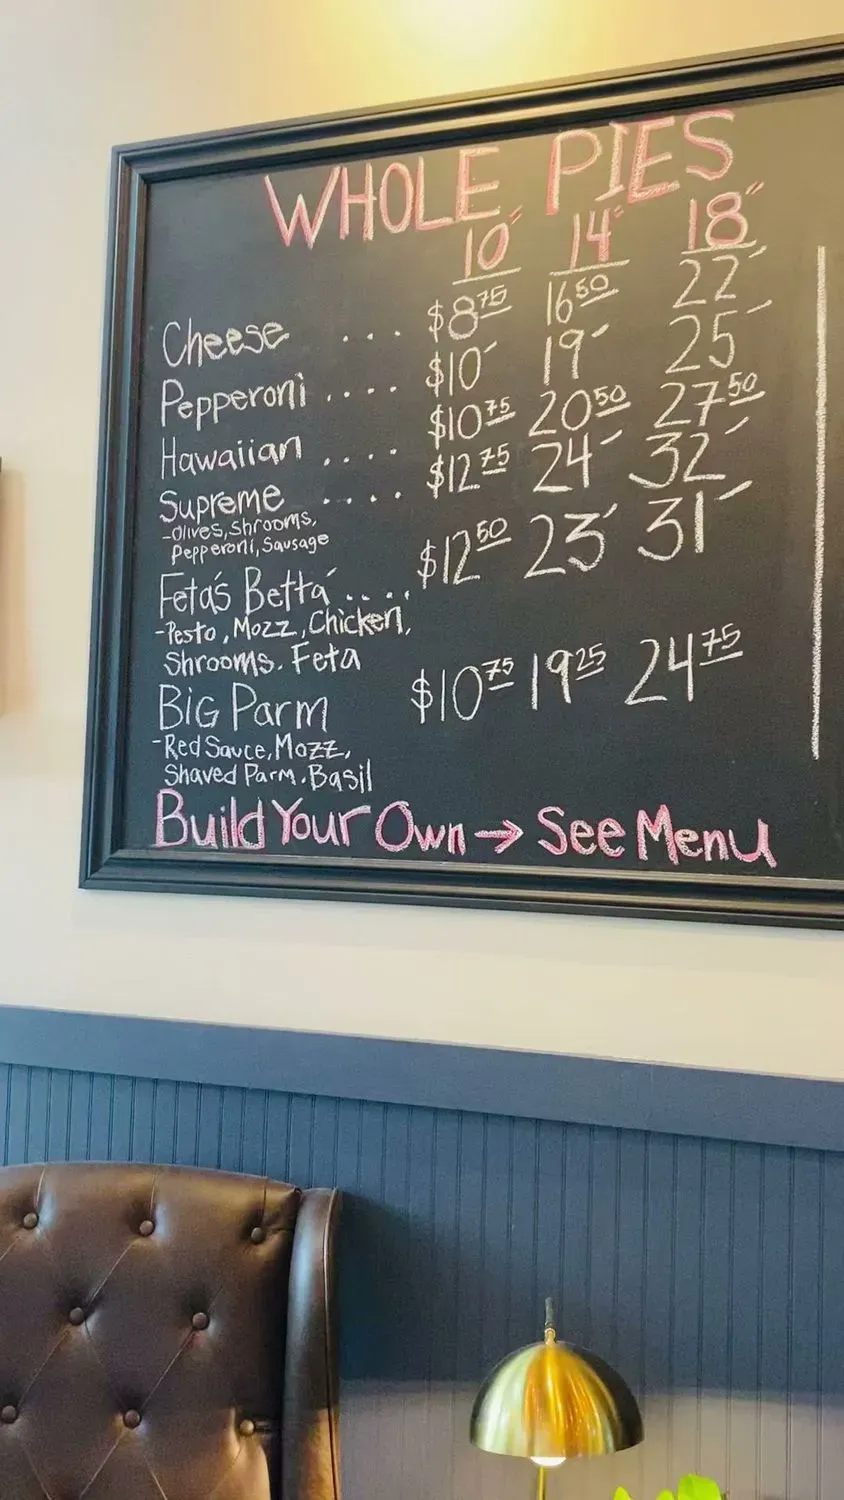 WHOLE PIES
10" 14" 18"
Cheese .... $8.75 16.50 22-
Pepperoni .... $10- 19- 25-
Hawaiian .... $10.75 20.50 27.50
Supreme .... $12.75 24- 32-
-Olives, Shrooms,
Pepperoni, Sausage
Feta's Betta .... $12.50 23- 31-
-Pesto, Mozz, Chicken,
Shrooms. Feta
Big Parm $10.75 19.25 24.75
-Red Sauce, Mozz,
Shaved Parm. Basil
Build Your Own → See Menu